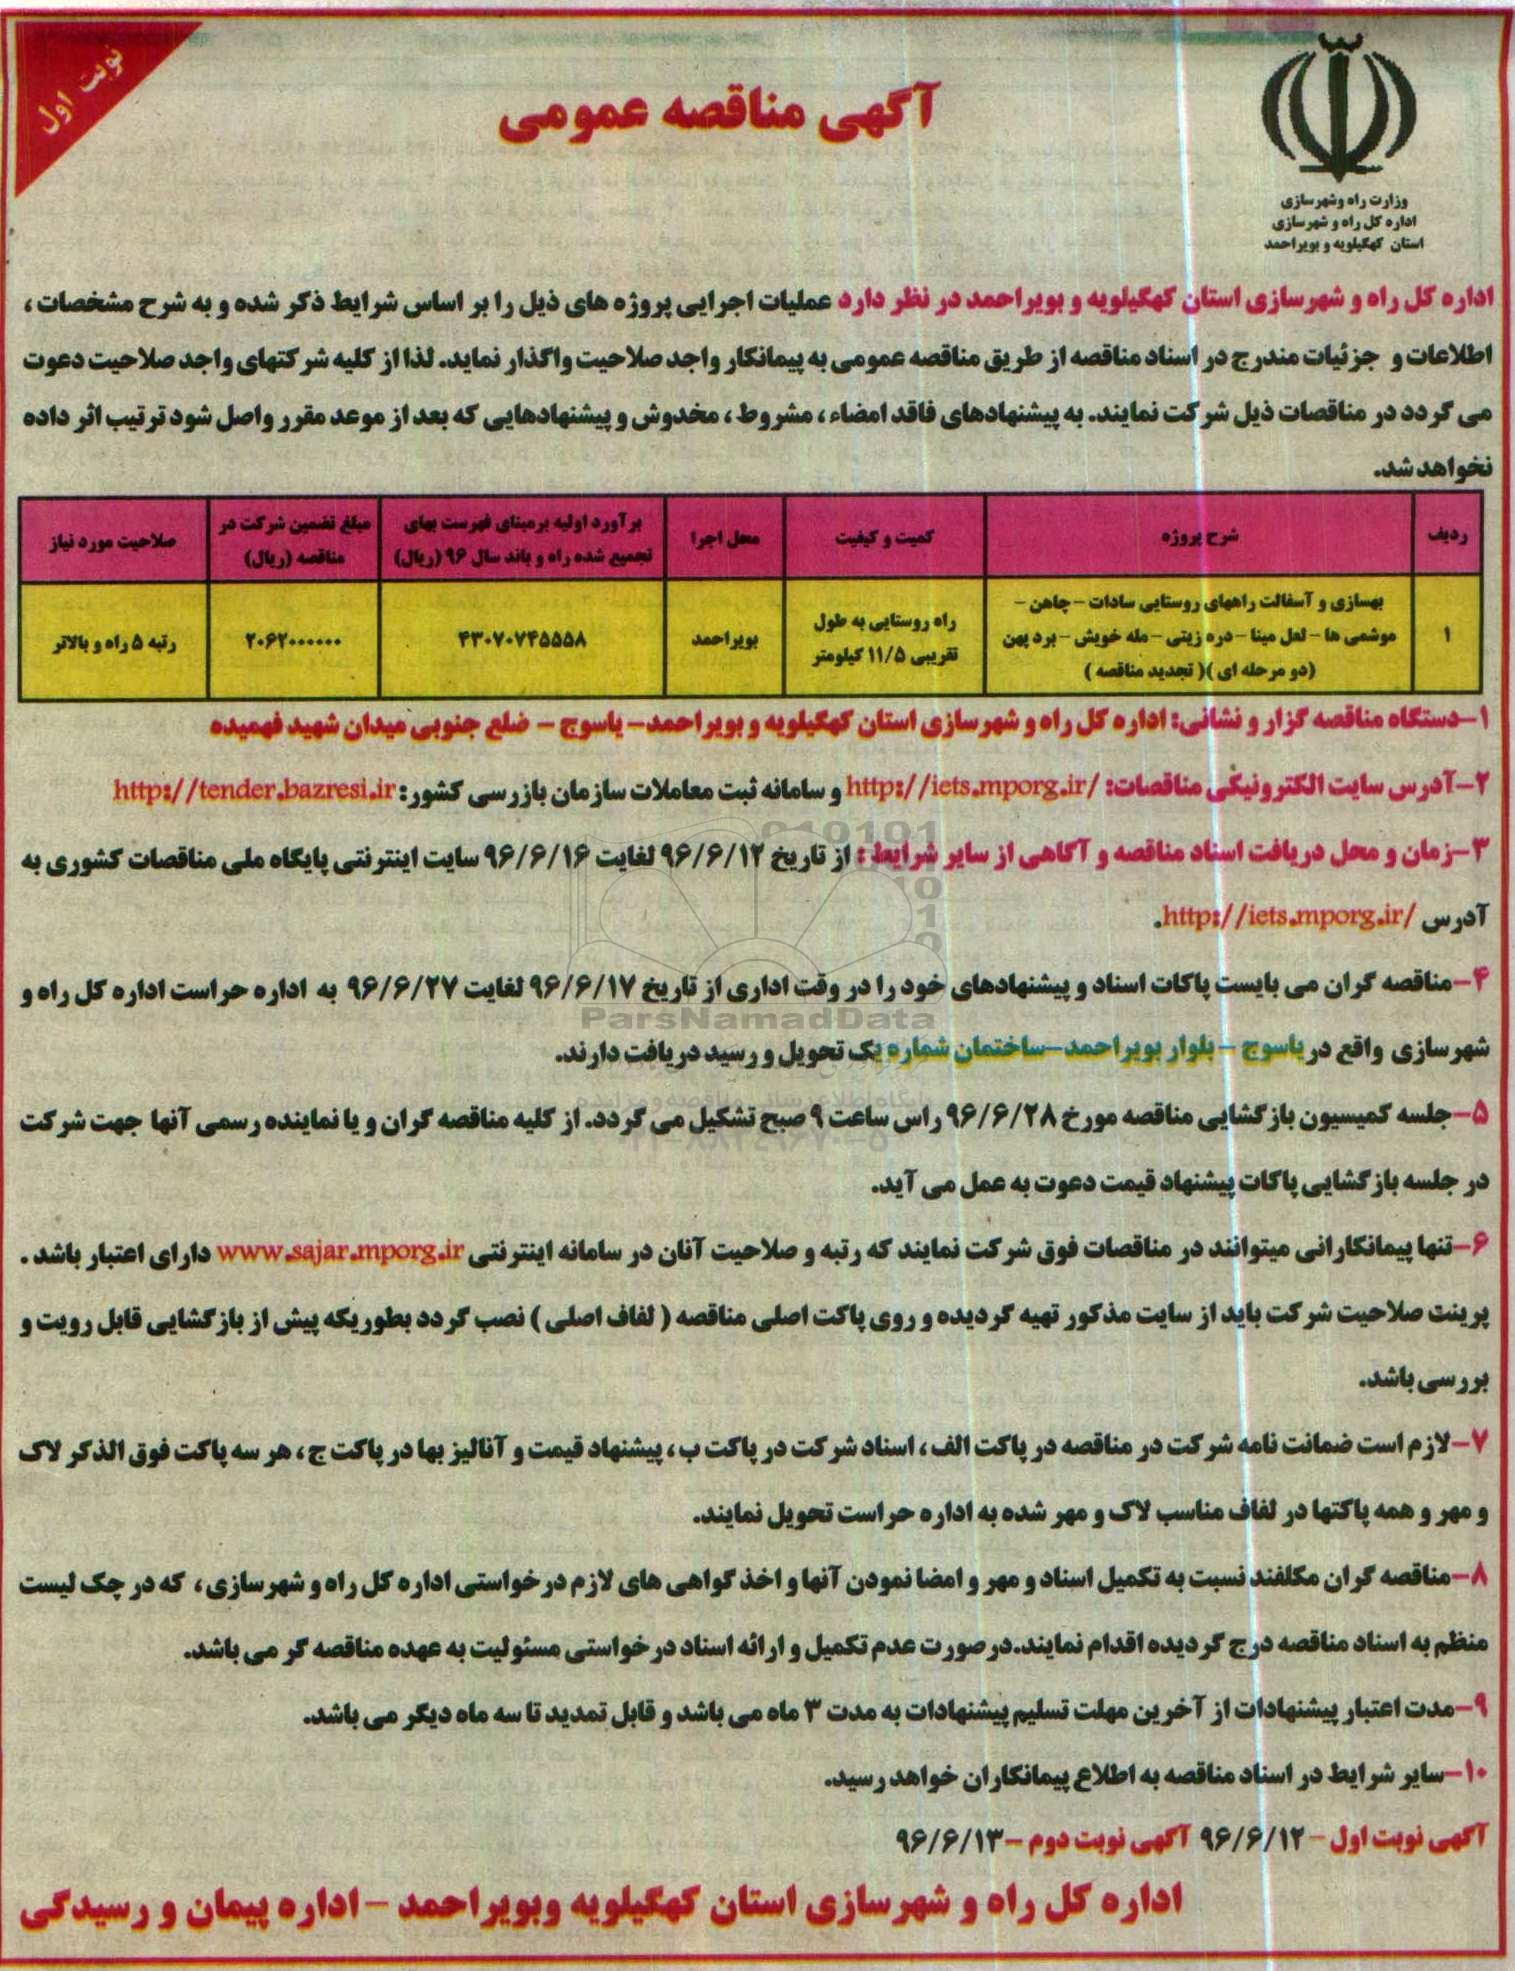 نوبت اول
آگهی مناقصه عمومی
وزارت راه وشهرسازی
اداره کل راه و شهرسازی
استان کهگیلویه و بویراحمد
اداره کل راه و شهرسازی استان کهگیلویه و بویراحمد در نظر دارد عملیات اجرایی پروژه های ذیل را بر اساس شرایط ذکر شده و به شرح مشخصات ،
اطلاعات و جزئیات مندرج در اسناد مناقصه از طریق مناقصه عمومی به پیمانکار واجد صلاحیت واگذار نماید. لذا از کلیه شرکتهای واجد صلاحیت دعوت
می گردد در مناقصات ذیل شرکت نمایند. به پیشنهادهای فاقد امضاء ، مشروط ، مخدوش و پیشنهادهایی که بعد از موعد مقرر واصل شود ترتیب اثر داده
نخواهد شد.
ردیف
شرح پروژه
کمیت و کیفیت
محل اجرا
برآورد اولیه برمبنای فهرست بهای
تجمیع شده راه و باند سال ۹۶ (ریال)
مبلغ تضمین شرکت در
مناقصه (ریال)
صلاحیت مورد نیاز
۱
بهسازی و آسفالت راههای روستایی سادات - چاهن -
موشمی ها - لعل مینا - دره زیتی - مله خویش - برد پهن
(دو مرحله ای )( تجدید مناقصه )
راه روستایی به طول
تقریبی ۱۱/۵ کیلومتر
بویراحمد
۴۳۰۷۰۷۴۵۵۵۸
۲۰۶۲۰۰۰۰۰۰
رتبه ۵ راه و بالاتر
۱-دستگاه مناقصه گزار و نشانی: اداره کل راه و شهرسازی استان کهگیلویه و بویراحمد- یاسوج - ضلع جنوبی میدان شهید فهمیده
۲-آدرس سایت الکترونیکی مناقصات: http://iets.mporg.ir/ و سامانه ثبت معاملات سازمان بازرسی کشور: http://tender.bazresi.ir
۳-زمان و محل دریافت اسناد مناقصه و آگاهی از سایر شرایط : از تاریخ ۹۶/۶/۱۲ لغایت ۹۶/۶/۱۶ سایت اینترنتی پایگاه ملی مناقصات کشوری به
آدرس http://iets.mporg.ir/.
۴-مناقصه گران می بایست پاکات اسناد و پیشنهادهای خود را در وقت اداری از تاریخ ۹۶/۶/۱۷ لغایت ۹۶/۶/۲۷ به اداره حراست اداره کل راه و
ParsNamadData
شهرسازی واقع در یاسوج - بلوار بویراحمد-ساختمان شماره یک تحویل و رسید دریافت دارند.
پایگاه اطلاع رسانی مناقصه و مزایده
۵-جلسه کمیسیون بازگشایی مناقصه مورخ ۹۶/۶/۲۸ راس ساعت ۹ صبح تشکیل می گردد. از کلیه مناقصه گران و یا نماینده رسمی آنها جهت شرکت
در جلسه بازگشایی پاکات پیشنهاد قیمت دعوت به عمل می آید.
۶-تنها پیمانکارانی میتوانند در مناقصات فوق شرکت نمایند که رتبه و صلاحیت آنان در سامانه اینترنتی www.sajar.mporg.ir دارای اعتبار باشد .
پرینت صلاحیت شرکت باید از سایت مذکور تهیه گردیده و روی پاکت اصلی مناقصه ( لفاف اصلی ) نصب گردد بطوریکه پیش از بازگشایی قابل رویت و
بررسی باشد.
۷-لازم است ضمانت نامه شرکت در مناقصه در پاکت الف ، اسناد شرکت در پاکت ب ، پیشنهاد قیمت و آنالیز بها در پاکت ج ، هر سه پاکت فوق الذکر لاک
و مهر و همه پاکتها در لفاف مناسب لاک و مهر شده به اداره حراست تحویل نمایند.
۸-مناقصه گران مکلفند نسبت به تکمیل اسناد و مهر و امضا نمودن آنها و اخذ گواهی های لازم درخواستی اداره کل راه و شهرسازی ، که در چک لیست
منظم به اسناد مناقصه درج گردیده اقدام نمایند.درصورت عدم تکمیل و ارائه اسناد درخواستی مسئولیت به عهده مناقصه گر می باشد.
۹-مدت اعتبار پیشنهادات از آخرین مهلت تسلیم پیشنهادات به مدت ۳ ماه می باشد و قابل تمدید تا سه ماه دیگر می باشد.
۱۰-سایر شرایط در اسناد مناقصه به اطلاع پیمانکاران خواهد رسید.
آگهی نوبت اول - ۹۶/۶/۱۲ آگهی نوبت دوم - ۹۶/۶/۱۳
اداره کل راه و شهرسازی استان کهگیلویه وبویراحمد - اداره پیمان و رسیدگی